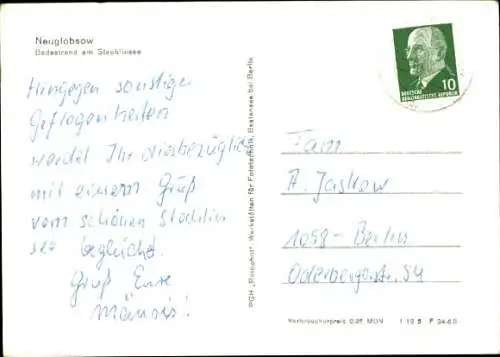 Neuglobsow
Badestrand am Stechlinsee
Hingegen sonstigen
Gepflogenheiten
werdet Ihr diesbezüglich
mit einem Gruß
vom schönen Stechlin
see beglückt.
Gruß Eure
PGH „Rotophot", Werkstätten für Fototechnik, Bestensee bei Berlin
10
DEUTSCHE
DEMOKRATISCHE REPUBLIK
Fam
A. Jaskow
1058 - Berlin
Oderbergerstr. 54
Verbraucherpreis 0,25 MDN